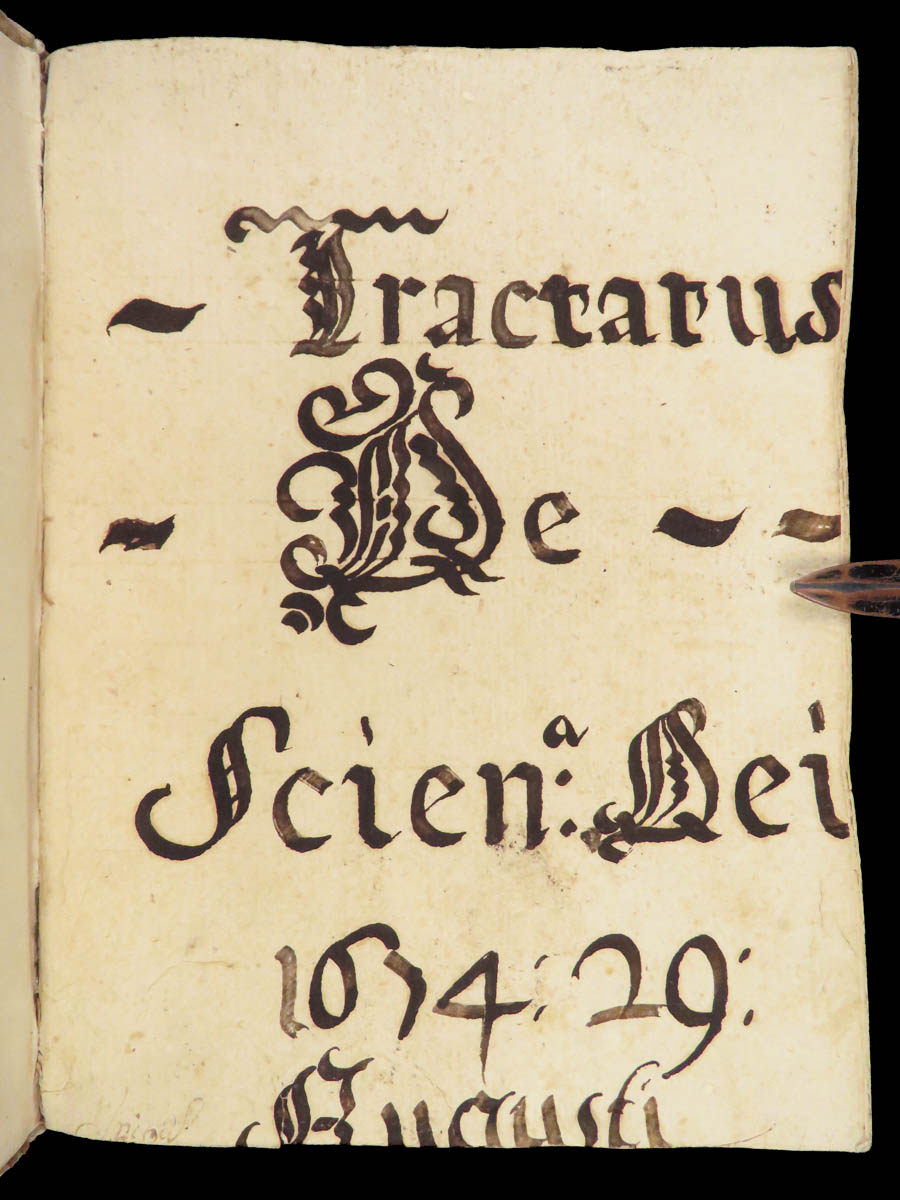 ~ Tractatus
~ De ~ ~
Scien:ª Dei
1674: 29:
Augusti